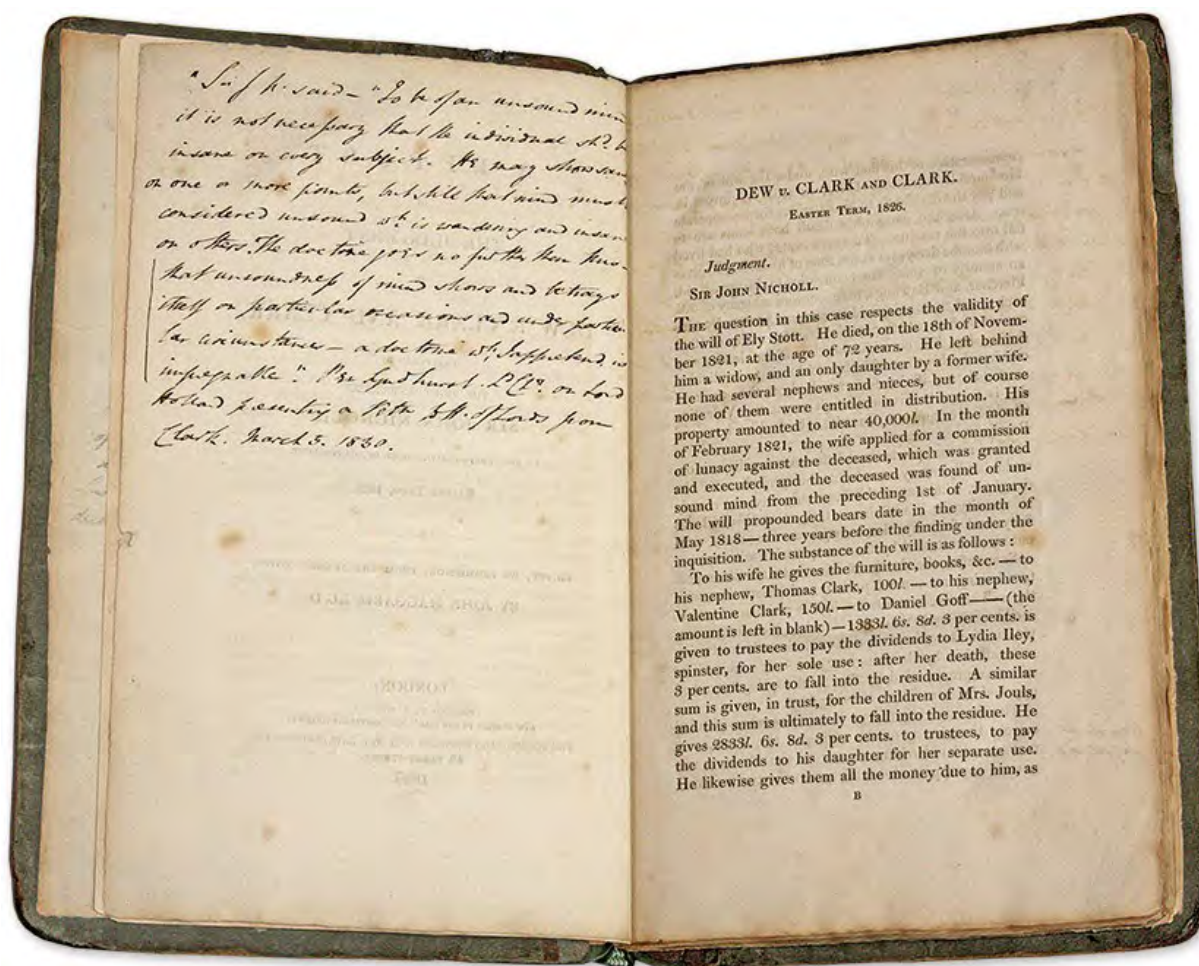 "Sir J. N. said – "To be of an unsound mind
it is not necessary that the individual shd. be
insane on every subject. He may show sani
on one or more points, but still that mind must b
considered unsound wh. is wandering and insane
on others. The doctrine goes no further than this –
that unsoundness of mind shows and betrays
itself on particular occasions and under particu
lar circumstances – a doctrine wh. I apprehend is
impregnable". Per Lyndhurst. Ld. Cr. on Lord
Holland presenting a Petn. to H. of Lords from
Clark. March 5. 1830.
DEW v. CLARK AND CLARK.
EASTER TERM, 1826.
Judgment.
SIR JOHN NICHOLL.
THE question in this case respects the validity of
the will of Ely Stott. He died, on the 18th of Novem-
ber 1821, at the age of 72 years. He left behind
him a widow, and an only daughter by a former wife.
He had several nephews and nieces, but of course
none of them were entitled in distribution. His
property amounted to near 40,000l. In the month
of February 1821, the wife applied for a commission
of lunacy against the deceased, which was granted
and executed, and the deceased was found of un-
sound mind from the preceding 1st of January.
The will propounded bears date in the month of
May 1818—three years before the finding under the
inquisition. The substance of the will is as follows:
To his wife he gives the furniture, books, &c.—to
his nephew, Thomas Clark, 100l.—to his nephew,
Valentine Clark, 150l.—to Daniel Goff——(the
amount is left in blank)—1333l. 6s. 8d. 3 per cents. is
given to trustees to pay the dividends to Lydia Iley,
spinster, for her sole use: after her death, these
3 per cents. are to fall into the residue. A similar
sum is given, in trust, for the children of Mrs. Jouls,
and this sum is ultimately to fall into the residue. He
gives 2833l. 6s. 8d. 3 per cents. to trustees, to pay
the dividends to his daughter for her separate use.
He likewise gives them all the money due to him, as
B